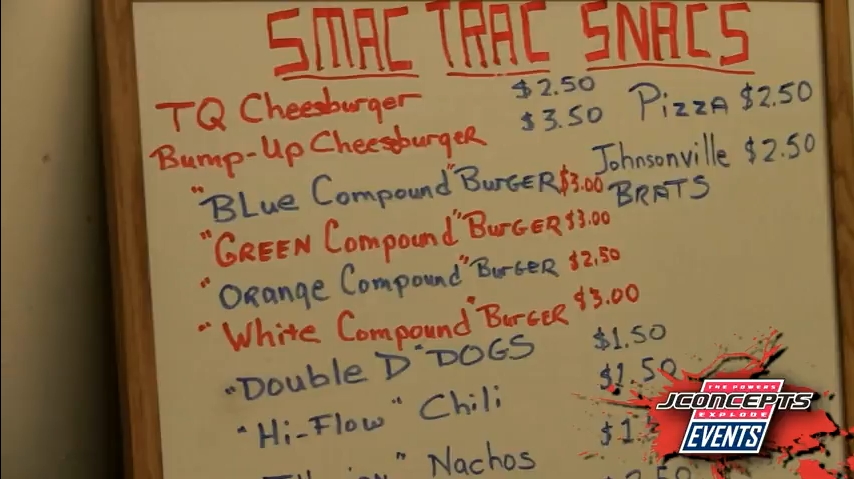 SMAC TRAC SNACS
TQ Cheesburger $2.50
Bump-Up Cheesburger $3.50
Pizza $2.50
"BLue Compound" BURGER $3.00
Johnsonville $2.50
BRATS
"GREEN Compound" BURGER $3.00
"Orange Compound" BURGER $2.50
"White Compound" BURGER $3.00
"Double D" DOGS $1.50
"Hi-Flow" Chili $1.50
" Nachos $1
2.50
THE POWERS
JCONCEPTS
EXPLODE
EVENTS